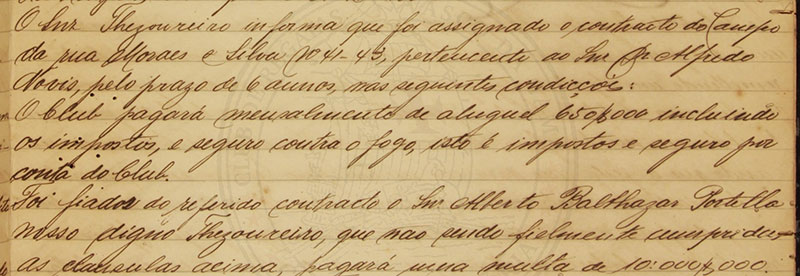 O Snr Thezoureiro informa que foi assignado o contracto do Campo
da rua Moraes e Silva Nº 41-43, pertencente ao Snr Dr Alfredo
Novis, pelo prazo de 6 annos, nas seguintes condicções:
O Club pagará mensalmente de aluguel 650$000 incluindo
os impostos, e seguro contra o fogo, isto é impostos e seguro por
conta do Club.
Foi fiador do referido contracto o Snr Alberto Balthazar Portella
nosso digno Thezoureiro, que nao sendo fielmente cumpridas
as clausulas acima, pagará uma multa de 10:000$000